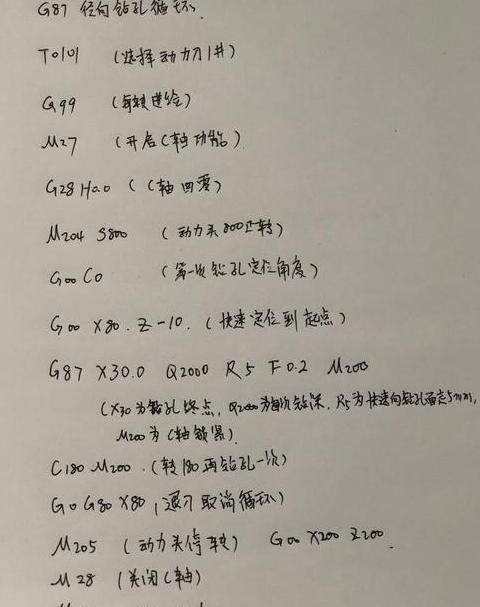 G87 径向钻孔循环.
T0101 (选择动力刀1#)
G99 (每转进给)
M27 (开启C轴功能)
G28 H0.0 (C轴回零)
M204 S800 (动力头800正转)
G00 C0 (第一次钻孔定位角度)
G00 X80. Z-10. (快速定位到起点)
G87 X30.0 Q2000 R5 F0.2 M200
(X30为钻孔终点, Q2000为每次钻深, R5为快速向钻孔 5mm,
M200为C轴锁紧)
C180 M200. (转180再钻孔一次)
G0 G80 X80, 退刀取消循环)
M205 (动力头停转) G00 X200 Z200.
M28 (关闭C轴)